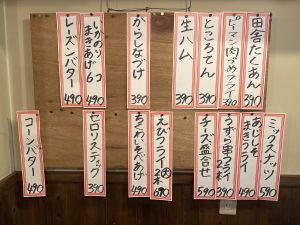 田舎たくあん 390
ピーマン肉づめフライ 390
ところてん 390
生ハム 390
からしなづけ 390
いかのり
まきあげ6コ 490
レーズンバター 490
ミックスナッツ 590
あじしそ
まきフライ 490
うずら串フライ
2本 490
チーズ盛合せ 590
えびフライ大
2本 690
ちくわいそべあげ 490
セロリスティック 390
コーンバター 490